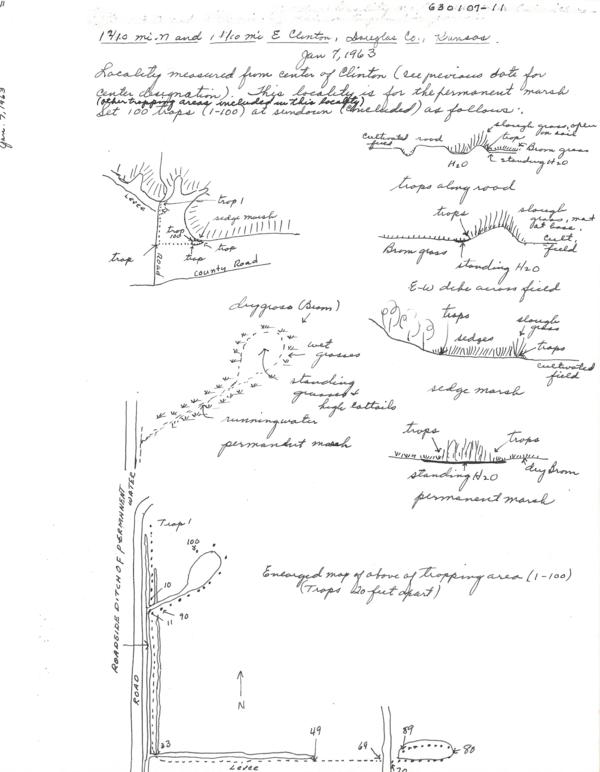 630107-11
1 9/10 mi. N and 1 1/10 mi E Clinton, Douglas Co., Kansas.
Jan 7, 1963
Jan. 7, 1963
Locality measured from center of Clinton (see previous date for
center designation). This locality is for the permanent marsh
(other trapping areas included in this locality)
Set 100 traps (1-100) at sundown (concluded) as follows:
cultivated field
road
slough grass, open
trap
on soil
Brom grass
standing H2O
H2O
traps along road
Levee
trap 1
sedge marsh
trap 100
trap
trap
trap
ROAD
County Road
traps
slough grass, mat at base.
Cult. field
Brom grass
standing H2O
E-W dike across field
dry grass (Brom)
wet grasses
standing grasses & high cattails
running water
permanent marsh
traps
sedges
slough grass
traps
cultivated field
sedge marsh
traps
traps
dry Brom
standing H2O
permanent marsh
ROADSIDE DITCH OF PERMANENT WATER
ROAD
Trap 1
100
10
90
11
Enlarged map of above of trapping area (1-100)
(Traps 20 feet apart)
N
33
49
69
89
80
70
Levee